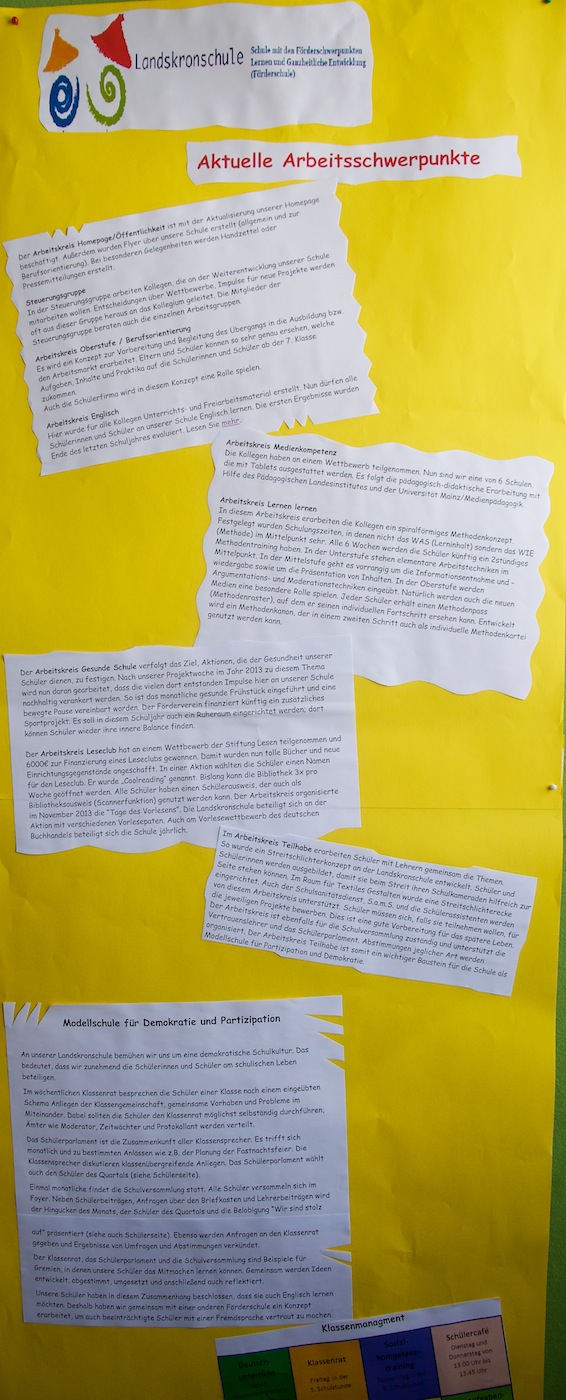 Landskronschule
Schule mit den Förderschwerpunkten
Lernen und Ganzheitliche Entwicklung
(Förderschule)
Aktuelle Arbeitsschwerpunkte
Der Arbeitskreis Homepage/Öffentlichkeit ist mit der Aktualisierung unserer Homepage
beschäftigt. Außerdem wurden Flyer über unsere Schule erstellt (allgemein und zur
Berufsorientierung). Bei besonderen Gelegenheiten werden Handzettel oder
Pressemitteilungen erstellt.
Steuerungsgruppe
In der Steuerungsgruppe arbeiten Kollegen, die an der Weiterentwicklung unserer Schule
mitarbeiten wollen. Entscheidungen über Wettbewerbe, Impulse für neue Projekte werden
oft aus dieser Gruppe heraus an das Kollegium geleitet. Die Mitglieder der
Steuerungsgruppe beraten auch die einzelnen Arbeitsgruppen.
Arbeitskreis Oberstufe / Berufsorientierung
Es wird ein Konzept zur Vorbereitung und Begleitung des Übergangs in die Ausbildung bzw.
den Arbeitsmarkt erarbeitet. Eltern und Schüler können so sehr genau ersehen, welche
Aufgaben, Inhalte und Praktika auf die Schülerinnen und Schüler ab der 7. Klasse
zukommen.
Auch die Schülerfirma wird in diesem Konzept eine Rolle spielen.
Arbeitskreis Englisch
Hier wurde für alle Kollegen Unterrichts- und Freiarbeitsmaterial erstellt. Nun dürfen alle
Schülerinnen und Schüler an unserer Schule Englisch lernen. Die ersten Ergebnisse wurden
Ende des letzten Schuljahres evaluiert. Lesen Sie mehr.
Arbeitskreis Medienkompetenz
Die Kollegen haben an einem Wettbewerb teilgenommen. Nun sind wir eine von 6 Schulen,
die mit Tablets ausgestattet werden. Es folgt die pädagogisch-didaktische Erarbeitung mit
Hilfe des Pädagogischen Landesinstitutes und der Universität Mainz/Medienpädagogik.
Arbeitskreis Lernen lernen
In diesem Arbeitskreis erarbeiten die Kollegen ein spiralförmiges Methodenkonzept.
Festgelegt wurden Schulungszeiten, in denen nicht das WAS (Lerninhalt) sondern das WIE
(Methode) im Mittelpunkt sehr. Alle 6 Wochen werden die Schüler künftig ein 2stündiges
Methodentraining haben. In der Unterstufe stehen elementare Arbeitstechniken im
Mittelpunkt. In der Mittelstufe geht es vorrangig um die Informationsentnahme und -
wiedergabe sowie um die Präsentation von Inhalten. In der Oberstufe werden
Argumentations- und Moderationstechniken eingeübt. Natürlich werden auch die neuen
Medien eine besondere Rolle spielen. Jeder Schüler erhält einen Methodenpass
(Methodenraster), auf dem er seinen individuellen Fortschritt ersehen kann. Entwickelt
wird ein Methodenkanon, der in einem zweiten Schritt auch als individuelle Methodenkartei
genutzt werden kann.
Der Arbeitskreis Gesunde Schule verfolgt das Ziel, Aktionen, die der Gesundheit unserer
Schüler dienen, zu festigen. Nach unserer Projektwoche im Jahr 2013 zu diesem Thema
wird nun daran gearbeitet, dass die vielen dort entstanden Impulse hier an unserer Schule
nachhaltig verankert werden. So ist das monatliche gesunde Frühstück eingeführt und eine
bewegte Pause vereinbart worden. Der Förderverein finanziert künftig ein zusätzliches
Sportprojekt. Es soll in diesem Schuljahr auch ein Ruheraum eingerichtet werden; dort
können Schüler wieder ihre innere Balance finden.
Der Arbeitskreis Leseclub hat an einem Wettbewerb der Stiftung Lesen teilgenommen und
6000€ zur Finanzierung eines Leseclubs gewonnen. Damit wurden nun tolle Bücher und neue
Einrichtungsgegenstände angeschafft. In einer Aktion wählten die Schüler einen Namen
für den Leseclub. Er wurde „Coolreading“ genannt. Bislang kann die Bibliothek 3x pro
Woche geöffnet werden. Alle Schüler haben einen Schülerausweis, der auch als
Bibliotheksausweis (Scannerfunktion) genutzt werden kann. Der Arbeitskreis organisierte
im November 2013 die "Tage des Vorlesens". Die Landskronschule beteiligt sich an der
Aktion mit verschiedenen Vorlesepaten. Auch am Vorlesewettbewerb des deutschen
Buchhandels beteiligt sich die Schule jährlich.
Im Arbeitskreis Teilhabe erarbeiten Schüler mit Lehrern gemeinsam die Themen.
So wurde ein Streitschlichterkonzept an der Landskronschule entwickelt. Schüler und
Schülerinnen werden ausgebildet, damit sie beim Streit ihren Schulkameraden hilfreich zur
Seite stehen können. Im Raum für Textiles Gestalten wurde eine Streitschlichterecke
eingerichtet. Auch der Schulsanitätsdienst, S.a.M.S. und die Schülerassistenten werden
von diesem Arbeitskreis unterstützt. Schüler müssen sich, falls sie teilnehmen wollen, für
die jeweiligen Projekte bewerben. Dies ist eine gute Vorbereitung für das spätere Leben.
Der Arbeitskreis ist ebenfalls für die Schulversammlung zuständig und unterstützt die
Vertrauenslehrer und das Schülerparlament. Abstimmungen jeglicher Art werden
organisiert. Der Arbeitskreis Teilhabe ist somit ein wichtiger Baustein für die Schule als
Modellschule für Partizipation und Demokratie.
Modellschule für Demokratie und Partizipation
An unserer Landskronschule bemühen wir uns um eine demokratische Schulkultur. Das
bedeutet, dass wir zunehmend die Schülerinnen und Schüler am schulischen Leben
beteiligen.
Im wöchentlichen Klassenrat besprechen die Schüler einer Klasse nach einem eingeübten
Schema Anliegen der Klassengemeinschaft, gemeinsame Vorhaben und Probleme im
Miteinander. Dabei sollten die Schüler den Klassenrat möglichst selbständig durchführen,
Ämter wie Moderator, Zeitwächter und Protokollant werden verteilt.
Das Schülerparlament ist die Zusammenkunft aller Klassensprecher. Es trifft sich
monatlich und zu bestimmten Anlässen wie z.B. der Planung der Fastnachtsfeier. Die
Klassensprecher diskutieren klassenübergreifende Anliegen. Das Schülerparlament wählt
auch den Schüler des Quartals (siehe Schülerseite).
Einmal monatliche findet die Schulversammlung statt. Alle Schüler versammeln sich im
Foyer. Neben Schülerbeiträgen, Anfragen über den Briefkasten und Lehrerbeiträgen wird
der Hingucker des Monats, der Schüler des Quartals und die Belobigung "Wir sind stolz
auf" präsentiert (siehe auch Schülerseite). Ebenso werden Anfragen an den Klassenrat
gegeben und Ergebnisse von Umfragen und Abstimmungen verkündet.
Der Klassenrat, das Schülerparlament und die Schulversammlung sind Beispiele für
Gremien, in denen unsere Schüler das Mitmachen lernen können. Gemeinsam werden Ideen
entwickelt, abgestimmt, umgesetzt und anschließend auch reflektiert.
Unsere Schüler haben in diesem Zusammenhang beschlossen, dass sie auch Englisch lernen
möchten. Deshalb haben wir gemeinsam mit einer anderen Förderschule ein Konzept
erarbeitet, um auch beeinträchtigte Schüler mit einer Fremdsprache vertraut zu machen.
Klassenmanagment
Klassenrat
Freitag in der
5. Schulstunde
Sozial-
kompetenz-
training
Schülercafé
Dienstag und
Donnerstag von
13.00 Uhr bis
13.45 Uhr